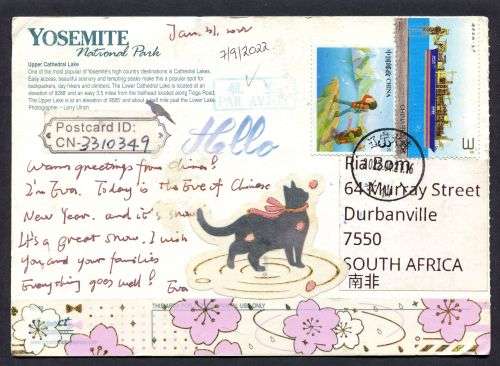 YOSEMITE
National Park
Jan. 31, 2022
7/9/2022
Upper Cathedral Lake
One of the most popular of Yosemite's high country destinations is Cathedral Lakes.
Easy access, beautiful scenery and tempting peaks make this a popular spot for
backpackers, day hikers and climbers. The Lower Cathedral Lake is located at an
elevation of 9288' and an easy 3.5 miles from the trailhead located along Tioga Road.
The Upper Lake is at an elevation of 9585' and about a half mile past the Lower Lake.
Photographer – Larry Ulrich
PAR AVION
中国邮政 CHINA
Postcard ID:
CN-3310349
Hello
Warm greetings from China!
I'm Eva. Today is the Eve of Chinese
New Year. and it's snow
It's a great snow. I wish
you and your families
Everything goes well! Eva
Ria Bom
64 Murray Street
Durbanville
7550
SOUTH AFRICA
南非
USE ONLY